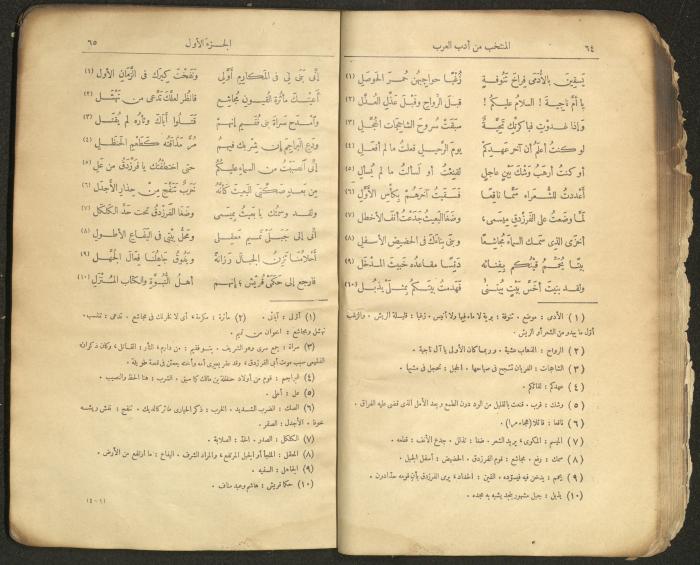 ٦٤
المنتخب من أدب العرب
يسقين بالأدمى فراخ تنوفة زغبا حواجبهن حمر الحوصل (١)
يا أم ناجية ! السلام عليكم ! قبل الرواح وقبل عذل العذل (٢)
وإذا غدوت فباكرتك تحية سبقت سروح الشاحجات الحجل (٣)
لو كنت أعلم أن آخر عهدكم يوم الرحيل فعلت ما لم أفعل (٤)
أو كنت أرهب وشك بين عاجل لقنعت أو لسألت ما لم يسأل (٥)
أعددت للشعراء سما ناقعا فسقيت آخرهم بكأس الأول (٦)
لما وضعت على الفرزدق ميسمى، وضغا البعيث جدعت أنف الأخطل (٧)
أخزى الذى سمك السماء مجاشعا وبنى بناءك فى الحضيض الأسفل (٨)
بيتا يحمم قينكم بفنائه دنسا مقاعده خبيث المدخل (٩)
ولقد بنيت أخس بيت يبتنى فهدمت بيتكم بمثلى يذبل (١٠)
(١) الأدمى : موضع . تنوفة : برية لا ماء فيها ولا أنيس . زغبا : قليلة الريش .
أول ما يبدو من الشعر أو الريش .
(٢) الرواح : الذهاب عشية . وربما كان الأولى يا آل ناجية .
(٣) الشاحجات : الغربان تشحج فى صياحها . الحجل : تحجل فى مشيها .
(٤) عهدكم : لقائكم .
(٥) وشك : قرب . قنعت بالقليل من الود دون الطمع وبعد الأمل الذى قضى عليه الفراق .
(٦) ناقعا : قاتلا (هجاء مرا) .
(٧) الميسم : المكوى، يريد الشعر . ضغا : تذلل . جدع الأنف : قطعه .
(٨) سمك : رفع . مجاشع : قوم الفرزدق . الحضيض : أسفل الجبل .
(٩) يحمم : يدخن فيه فيسوده . القين : الحداد، يرمى الفرزدق بأن قومه حدادون .
(١٠) يذبل : جبل مشهور بنجد يشبه به مجده .
الجزء الأول
٦٥
إنى بنى لى فى المكارم أولى ونفخت كيرك فى الزمان الأول (١)
أعيتك مأثرة القيون مجاشع فانظر لعلك تدعى من نهشل (٢)
وامدح سراة بنى فقيم إنهم قتلوا أباك وثأره لم يقتل (٣)
ودع البراجم إن شربك فيهم مر مذاقته كطعم الحنظل (٤)
إنى انصببت من السماء عليكم حتى اختطفتك يا فرزدق من عل (٥)
من بعد صكتى البعيث كأنه خرب تنفج من حذار الأجدل (٦)
ولقد وسمتك يا بعيث بميسمى وضغا الفرزدق تحت حد الكلكل (٧)
إنى إلى جبلى تميم معقلى ومحل بيتى فى اليفاع الأطول (٨)
أحلامنا تزن الجبال رزانة ويفوق جاهلنا فعال الجهل (٩)
فارجع إلى حكمى قريش؛ إنهم أهل النبوة والكتاب المنزل (١٠)
(١) أولى : آبائى . (٢) مأثرة : مكرمة، أى لا فخر لك فى مجاشع . تدعى : تنتسب .
نهشل ومجاشع : أخوان من تميم .
(٣) سراة : جمع سرى وهو الشريف . بنو فقيم : من دارم، الثأر : القاتل، وكان ذكوان
الفقيمى سبب موت أبى الفرزدق، وقد عقر بعيرى أمه وأخته يعمى فى قصة طويلة .
(٤) البراجم : قوم من أولاد حنظلة بن مالك . الشرب : هنا الحظ والنصيب .
(٥) عل : أعلى .
(٦) الصك : الضرب الشديد . الخرب : ذكر الحبارى طائر كالديك . تنفج : نفش ريشه
خوفا . الأجدل : الصقر .
(٧) الكلكل : الصدر . الحد : الصلابة .
(٨) المعقل : الملجأ أو الجبل المرتفع، والمراد الشرف . اليفاع : ما ارتفع من الأرض .
(٩) الجاهل : السفيه .
(١٠) حكما قريش : هاشم وعبد مناف .